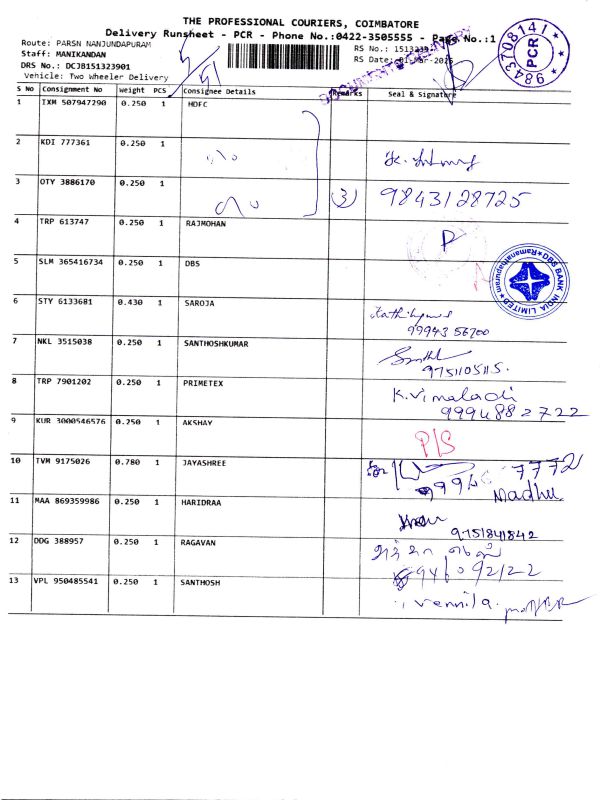 THE PROFESSIONAL COURIERS, COIMBATORE
Delivery Runsheet - PCR - Phone No.:0422-3505555 - Page No.:1
Route: PARSN NANJUNDAPURAM
Staff: MANIKANDAN
DRS No.: DCJB151323901
Vehicle: Two Wheeler Delivery
RS No.:
RS Date:
9843708141
PCR
S No Consignment No Weight PCS Consignee Details Remarks Seal & Signature
1 IXM 507947290 0.250 1 HDFC
2 KDI 777361 0.250 1
3 OTY 3886170 0.250 1 3 9843128725
4 TRP 613747 0.250 1 RAJMOHAN P
5 SLM 365416734 0.250 1 DBS
DBS BANK INDIA LIMITED Ramanathapuram
6 STY 6133681 0.430 1 SAROJA
99943 56700
7 NKL 3515038 0.250 1 SANTHOSHKUMAR
9751105115.
8 TRP 7901202 0.250 1 PRIMETEX K.Vimaladi
9994882722
9 KUR 3000546576 0.250 1 AKSHAY P/S
10 TVM 9175026 0.780 1 JAYASHREE 7772
Madhu
11 MAA 869359986 0.250 1 HARIDRAA
9751841842
12 DDG 388957 0.250 1 RAGAVAN
13 VPL 950485541 0.250 1 SANTHOSH
Vennila